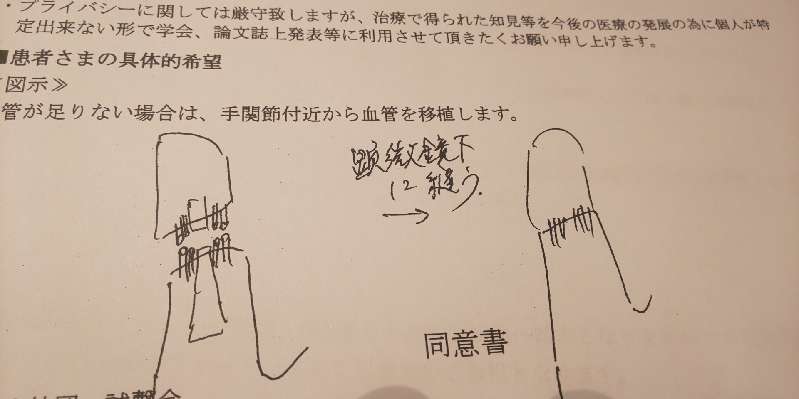 ・プライバシーに関しては厳守致しますが、治療で得られた知見等を今後の医療の発展の為に個人が特
定出来ない形で学会、論文誌上発表等に利用させて頂きたくお願い申し上げます。
■患者さまの具体的希望
図示≫
管が足りない場合は、手関節付近から血管を移植します。
顕微鏡下
に縫う.
同意書